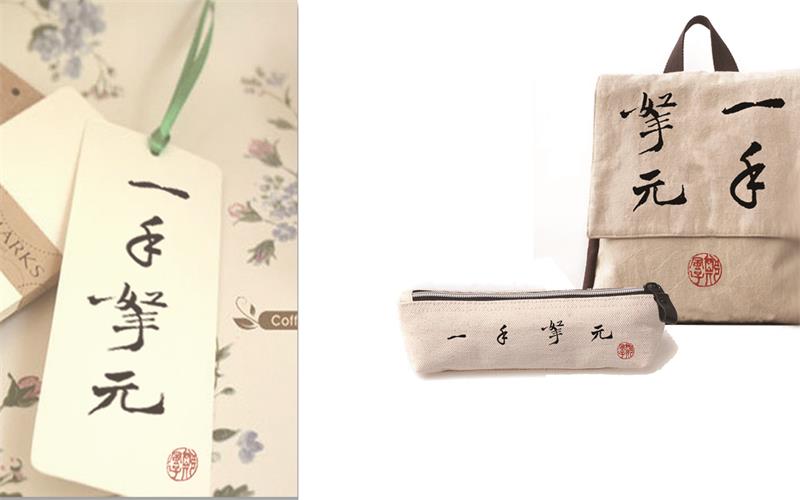 一手拏元
ARKS
Coff
一手
拏元
一手拏元